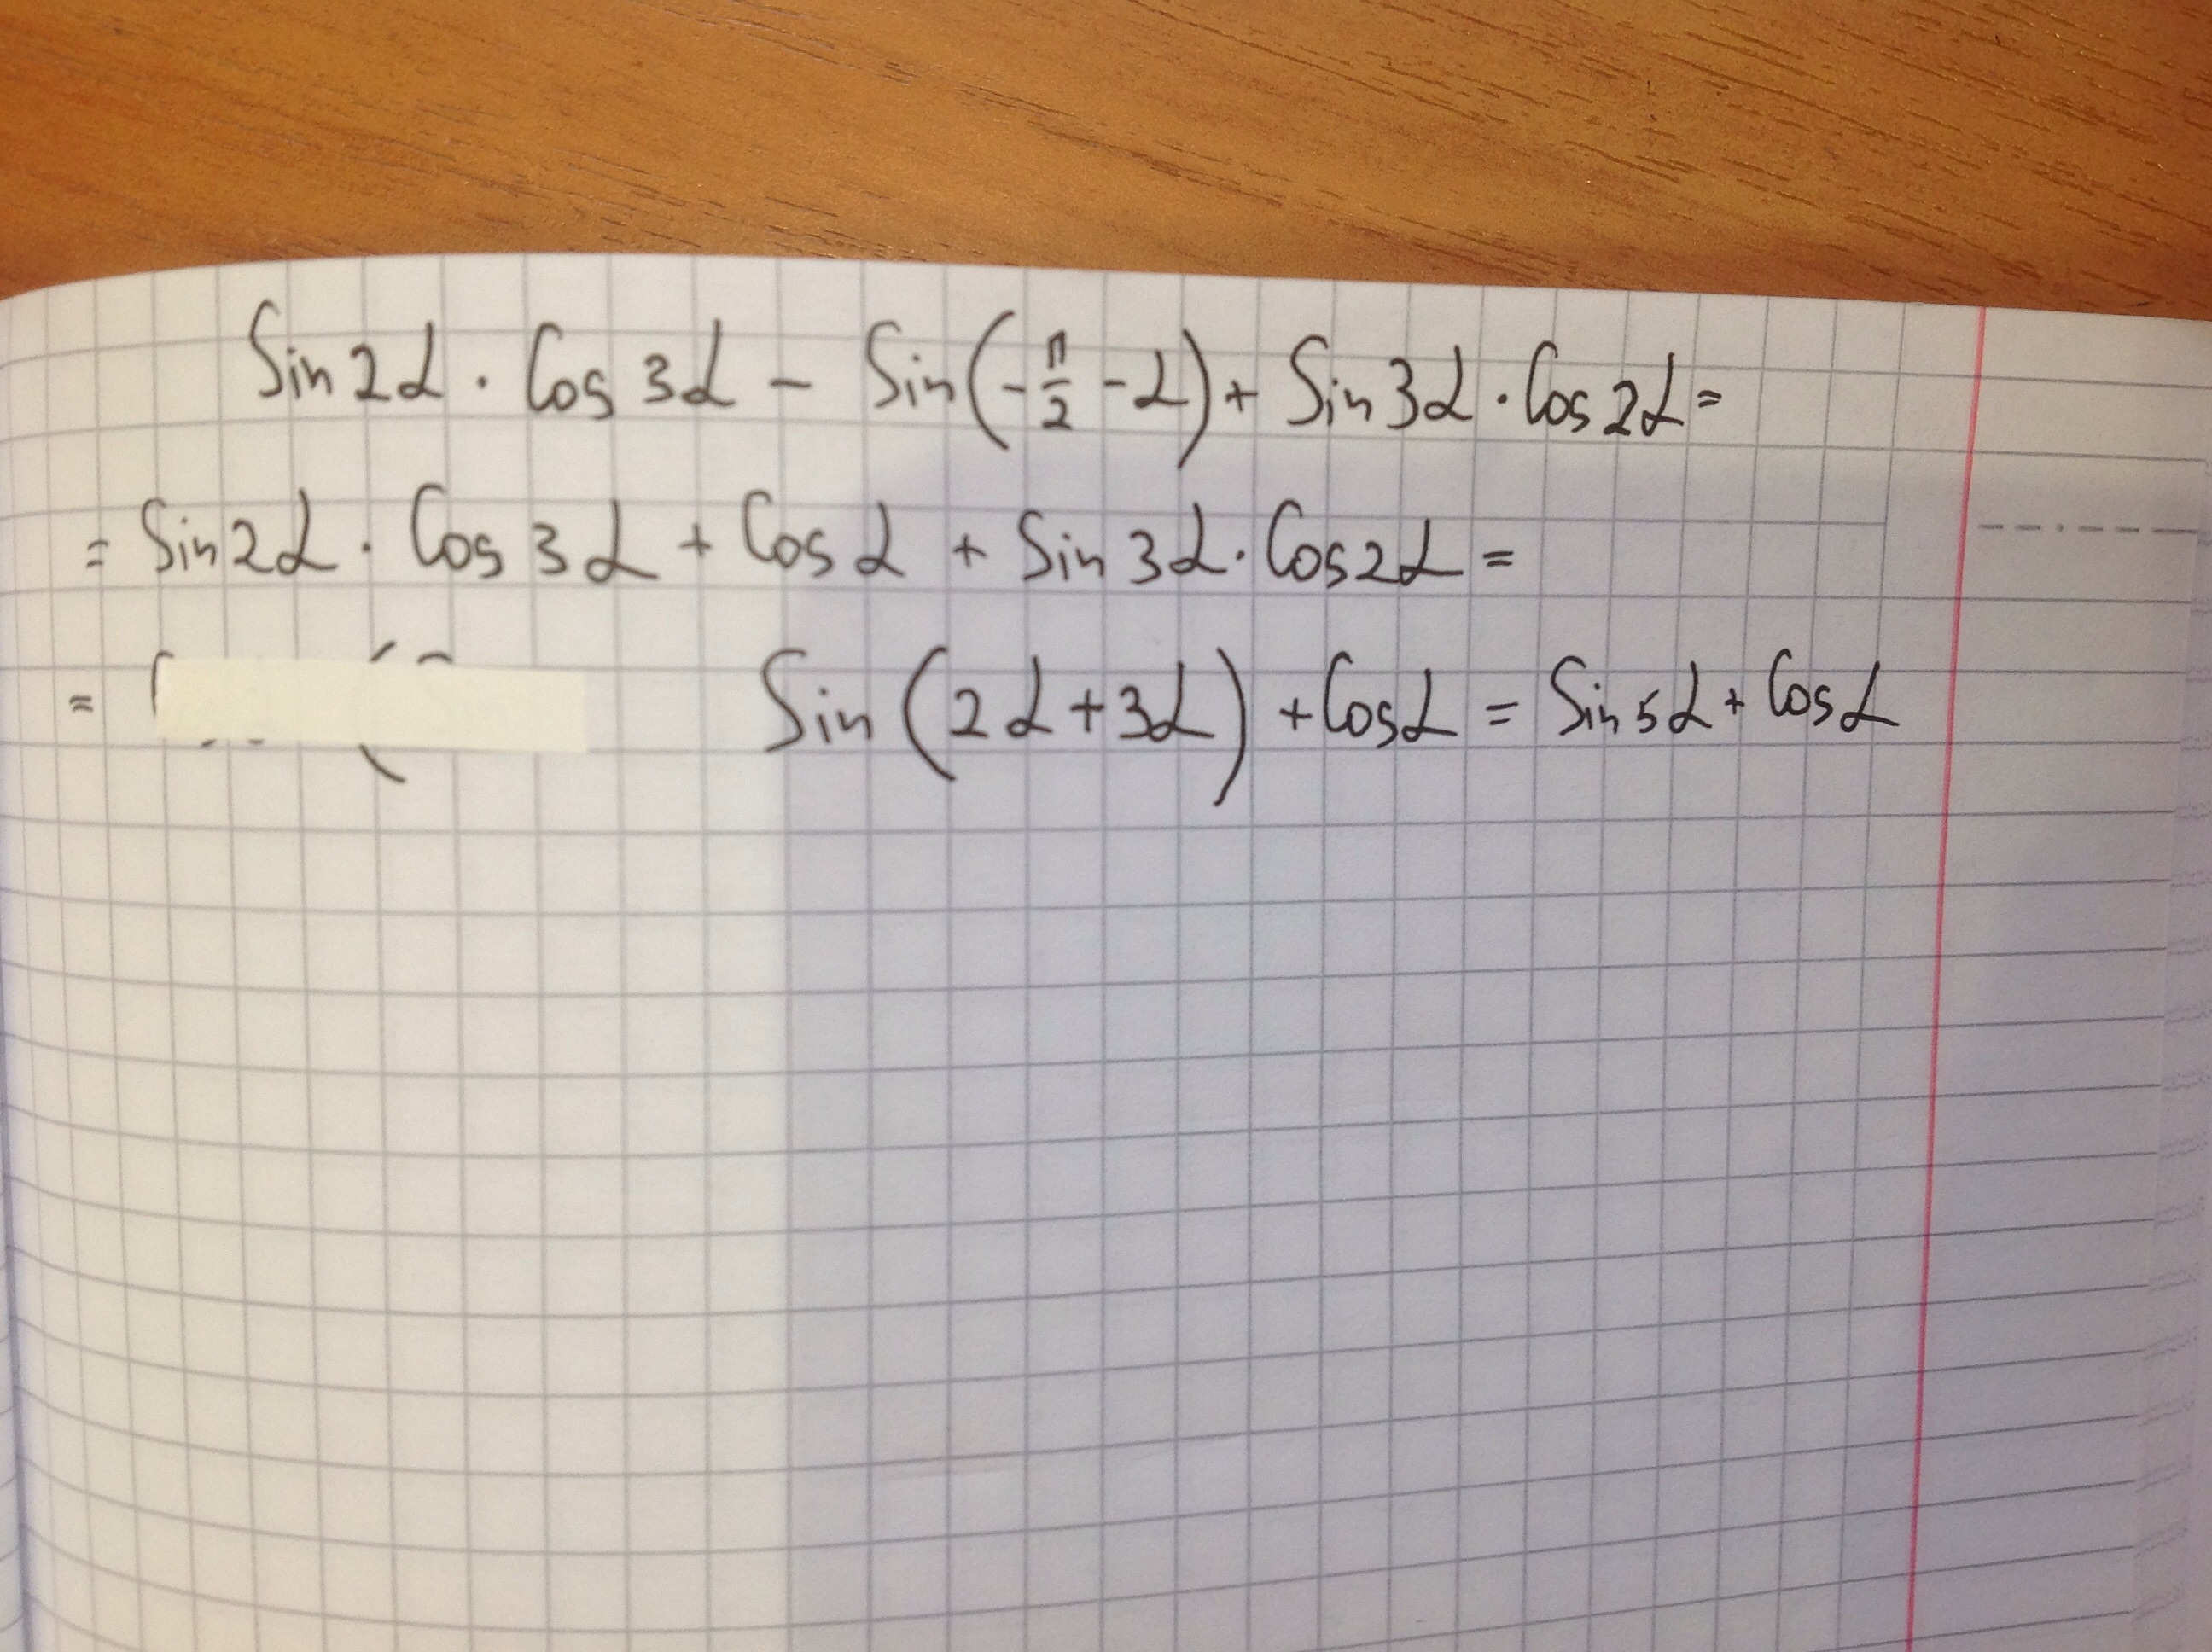 Sin 2α · Cos 3α − Sin(−π/2 − α) + Sin 3α · Cos 2α =
= Sin 2α · Cos 3α + Cos α + Sin 3α · Cos 2α =
= Sin (2α + 3α) + Cos α = Sin 5α + Cos α